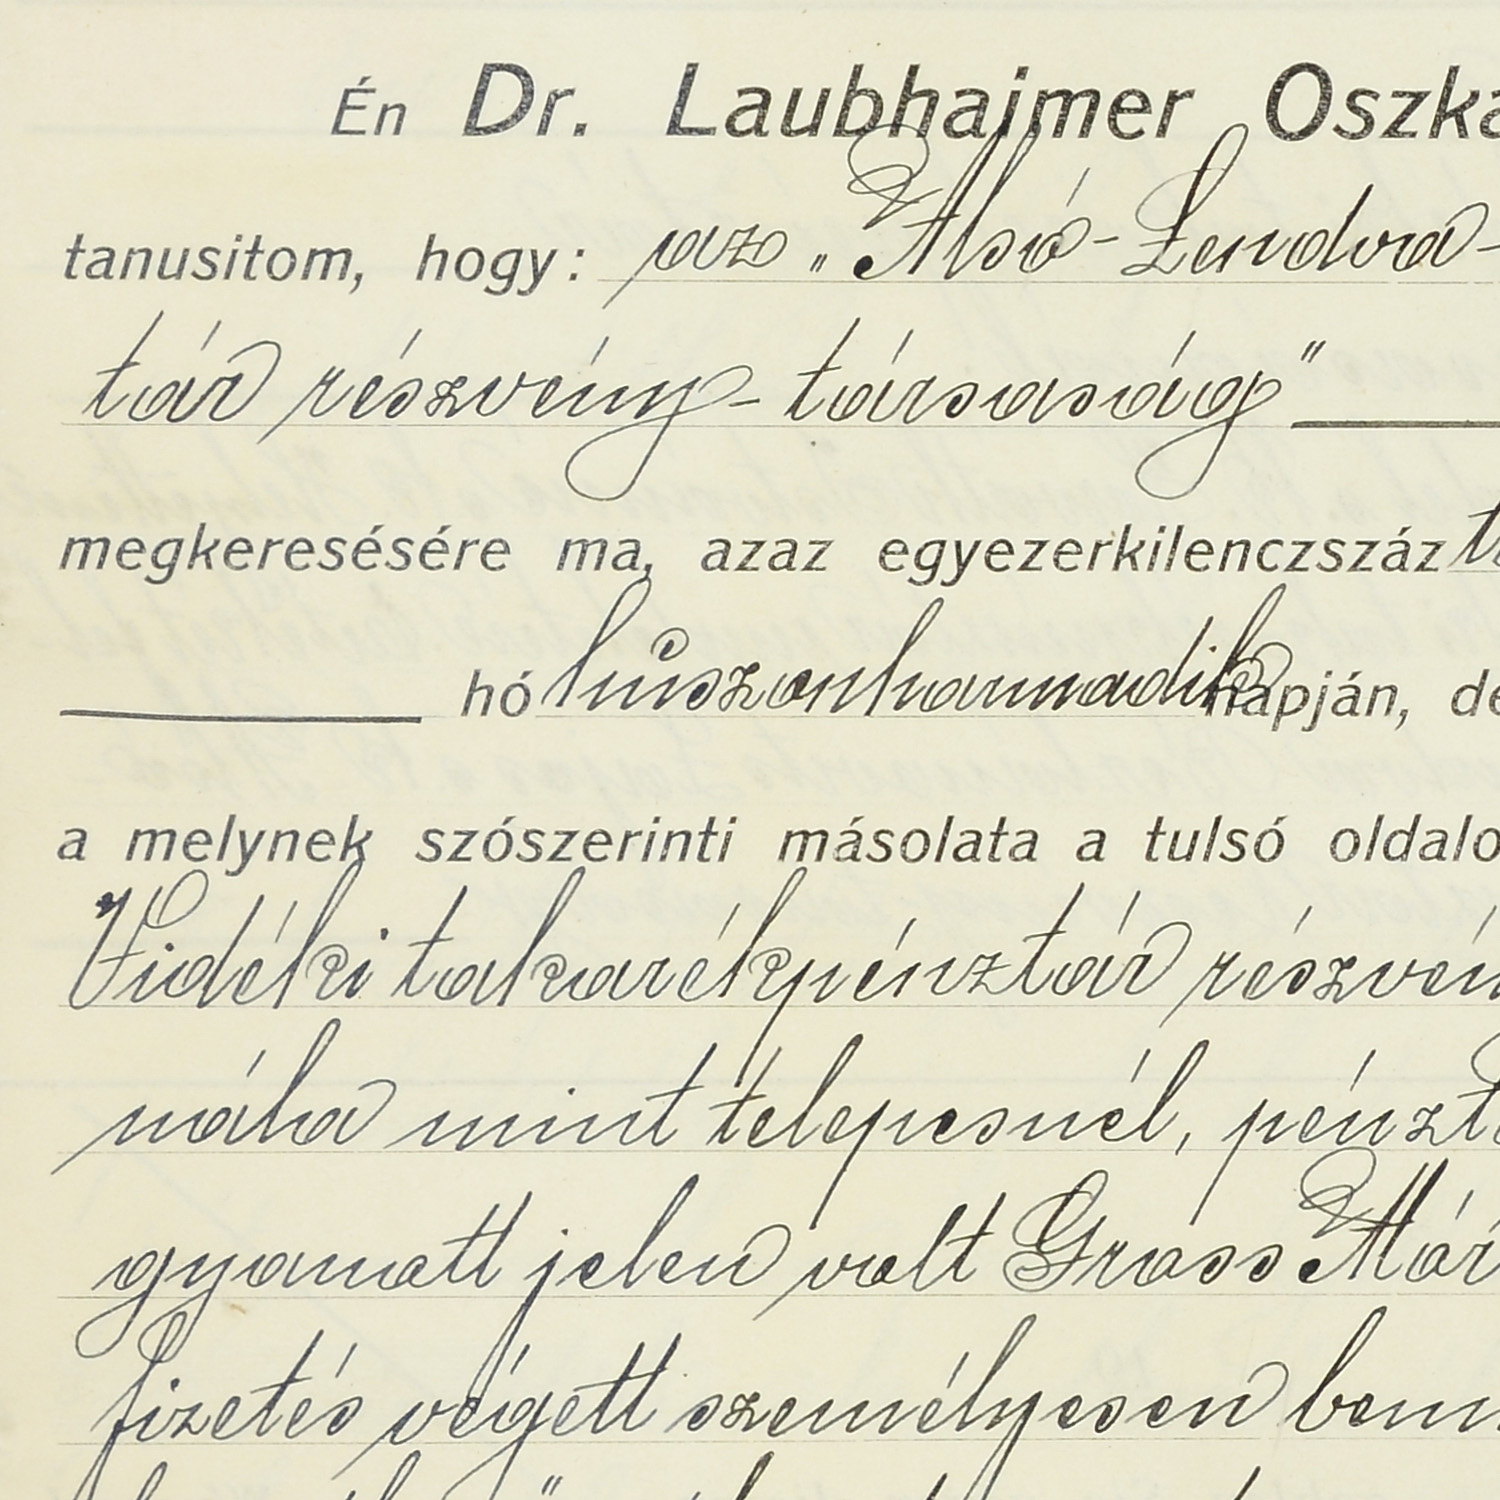 Én Dr. Laubhaimer Oszká
tanusitom, hogy: az „Alsó-Lendva-
tár részvény-társaság"
megkeresésére ma, azaz egyezerkilenczszáz
hó huszonharmadik napján, de
a melynek szószerinti másolata a tulsó oldalo
Vidéki takarékpénztár részvén
nála mint telepesnél, pénzt
gyanatt jelen volt Gross Már
fizetés végett személyesen bem